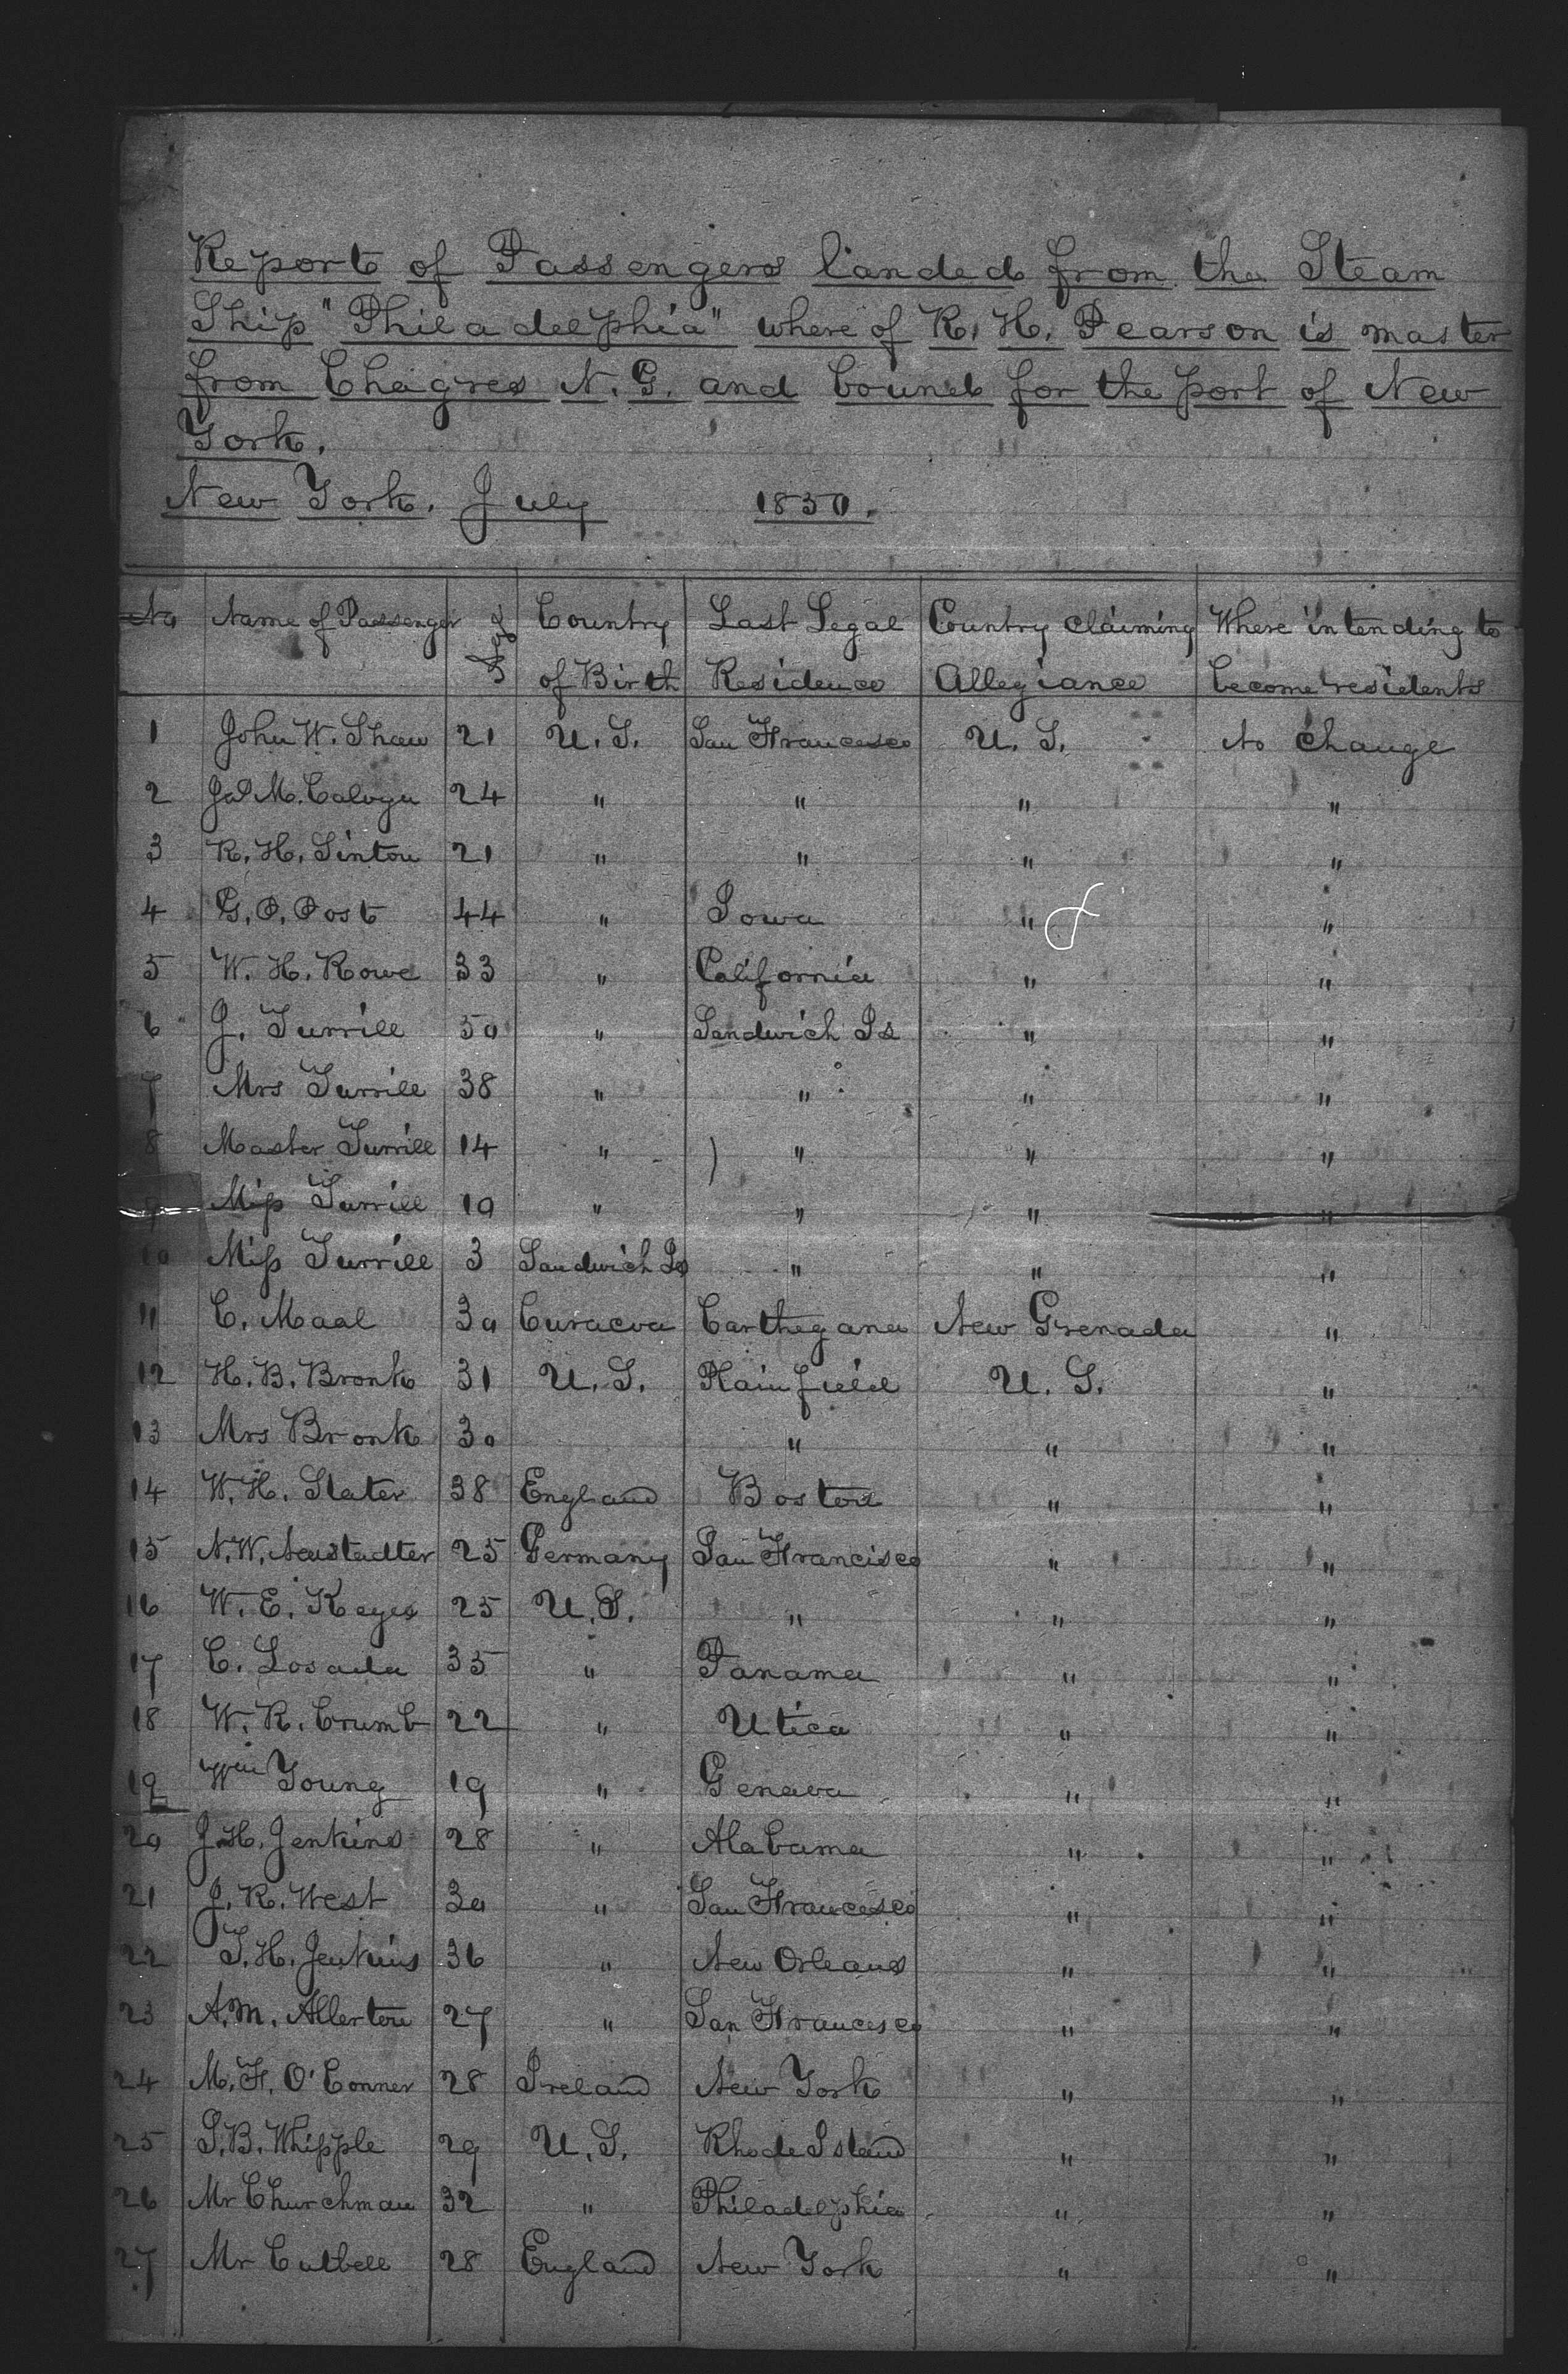 Report of Passengers landed from the Steam
Ship "Philadelphia" where of R. H. Pearson is master
from Chagres N. G. and bound for the port of New
York.
New York. July 1850.
No Name of Passenger Age Country of Birth Last Legal Residence Country claiming Allegiance Where intending to become residents
1 John W. Shaw 21 U. S. San Francesco U. S. No change
2 Jas M. 24 " " " "
3 R. H. Sinton 21 " " " "
4 G. P. Post 44 " Iowa " "
5 W. H. Rowe 33 " California " "
6 J. Turrill 50 " Sandwich Is " "
7 Mrs Turrill 38 " " " "
8 Master Turrill 14 " " " "
9 Miss Turrill 10 " " " "
10 Miss Turrill 3 Sandwich Is " " "
11 C. Maal 30 Curacoa Carthegana New Grenada "
12 H. B. Bronk 31 U. S. Plainfield U. S. "
13 Mrs Bronk 30 " " "
14 W. H. Slater 38 England Boston " "
15 N. W. Neustadter 25 Germany San Francisco " "
16 W. E. Keyes 25 U. S. " " "
17 C. Losada 35 " Panama " "
18 W. R. Crumb 22 " Utica " "
19 Wm Young 19 " Geneva " "
20 J. H. Jenkins 28 " Alabama " "
21 J. R. West 30 " San Francesco " "
22 T. H. Jenkins 36 " New Orleans " "
23 A. M. Allerton 27 " San Francesco " "
24 M. F. O'Conner 28 Ireland New York " "
25 S. B. Whipple 29 U. S. Rhode Island " "
26 Mr Churchman 32 " Philadelphia " "
27 Mr Cutbell 28 England New York " "